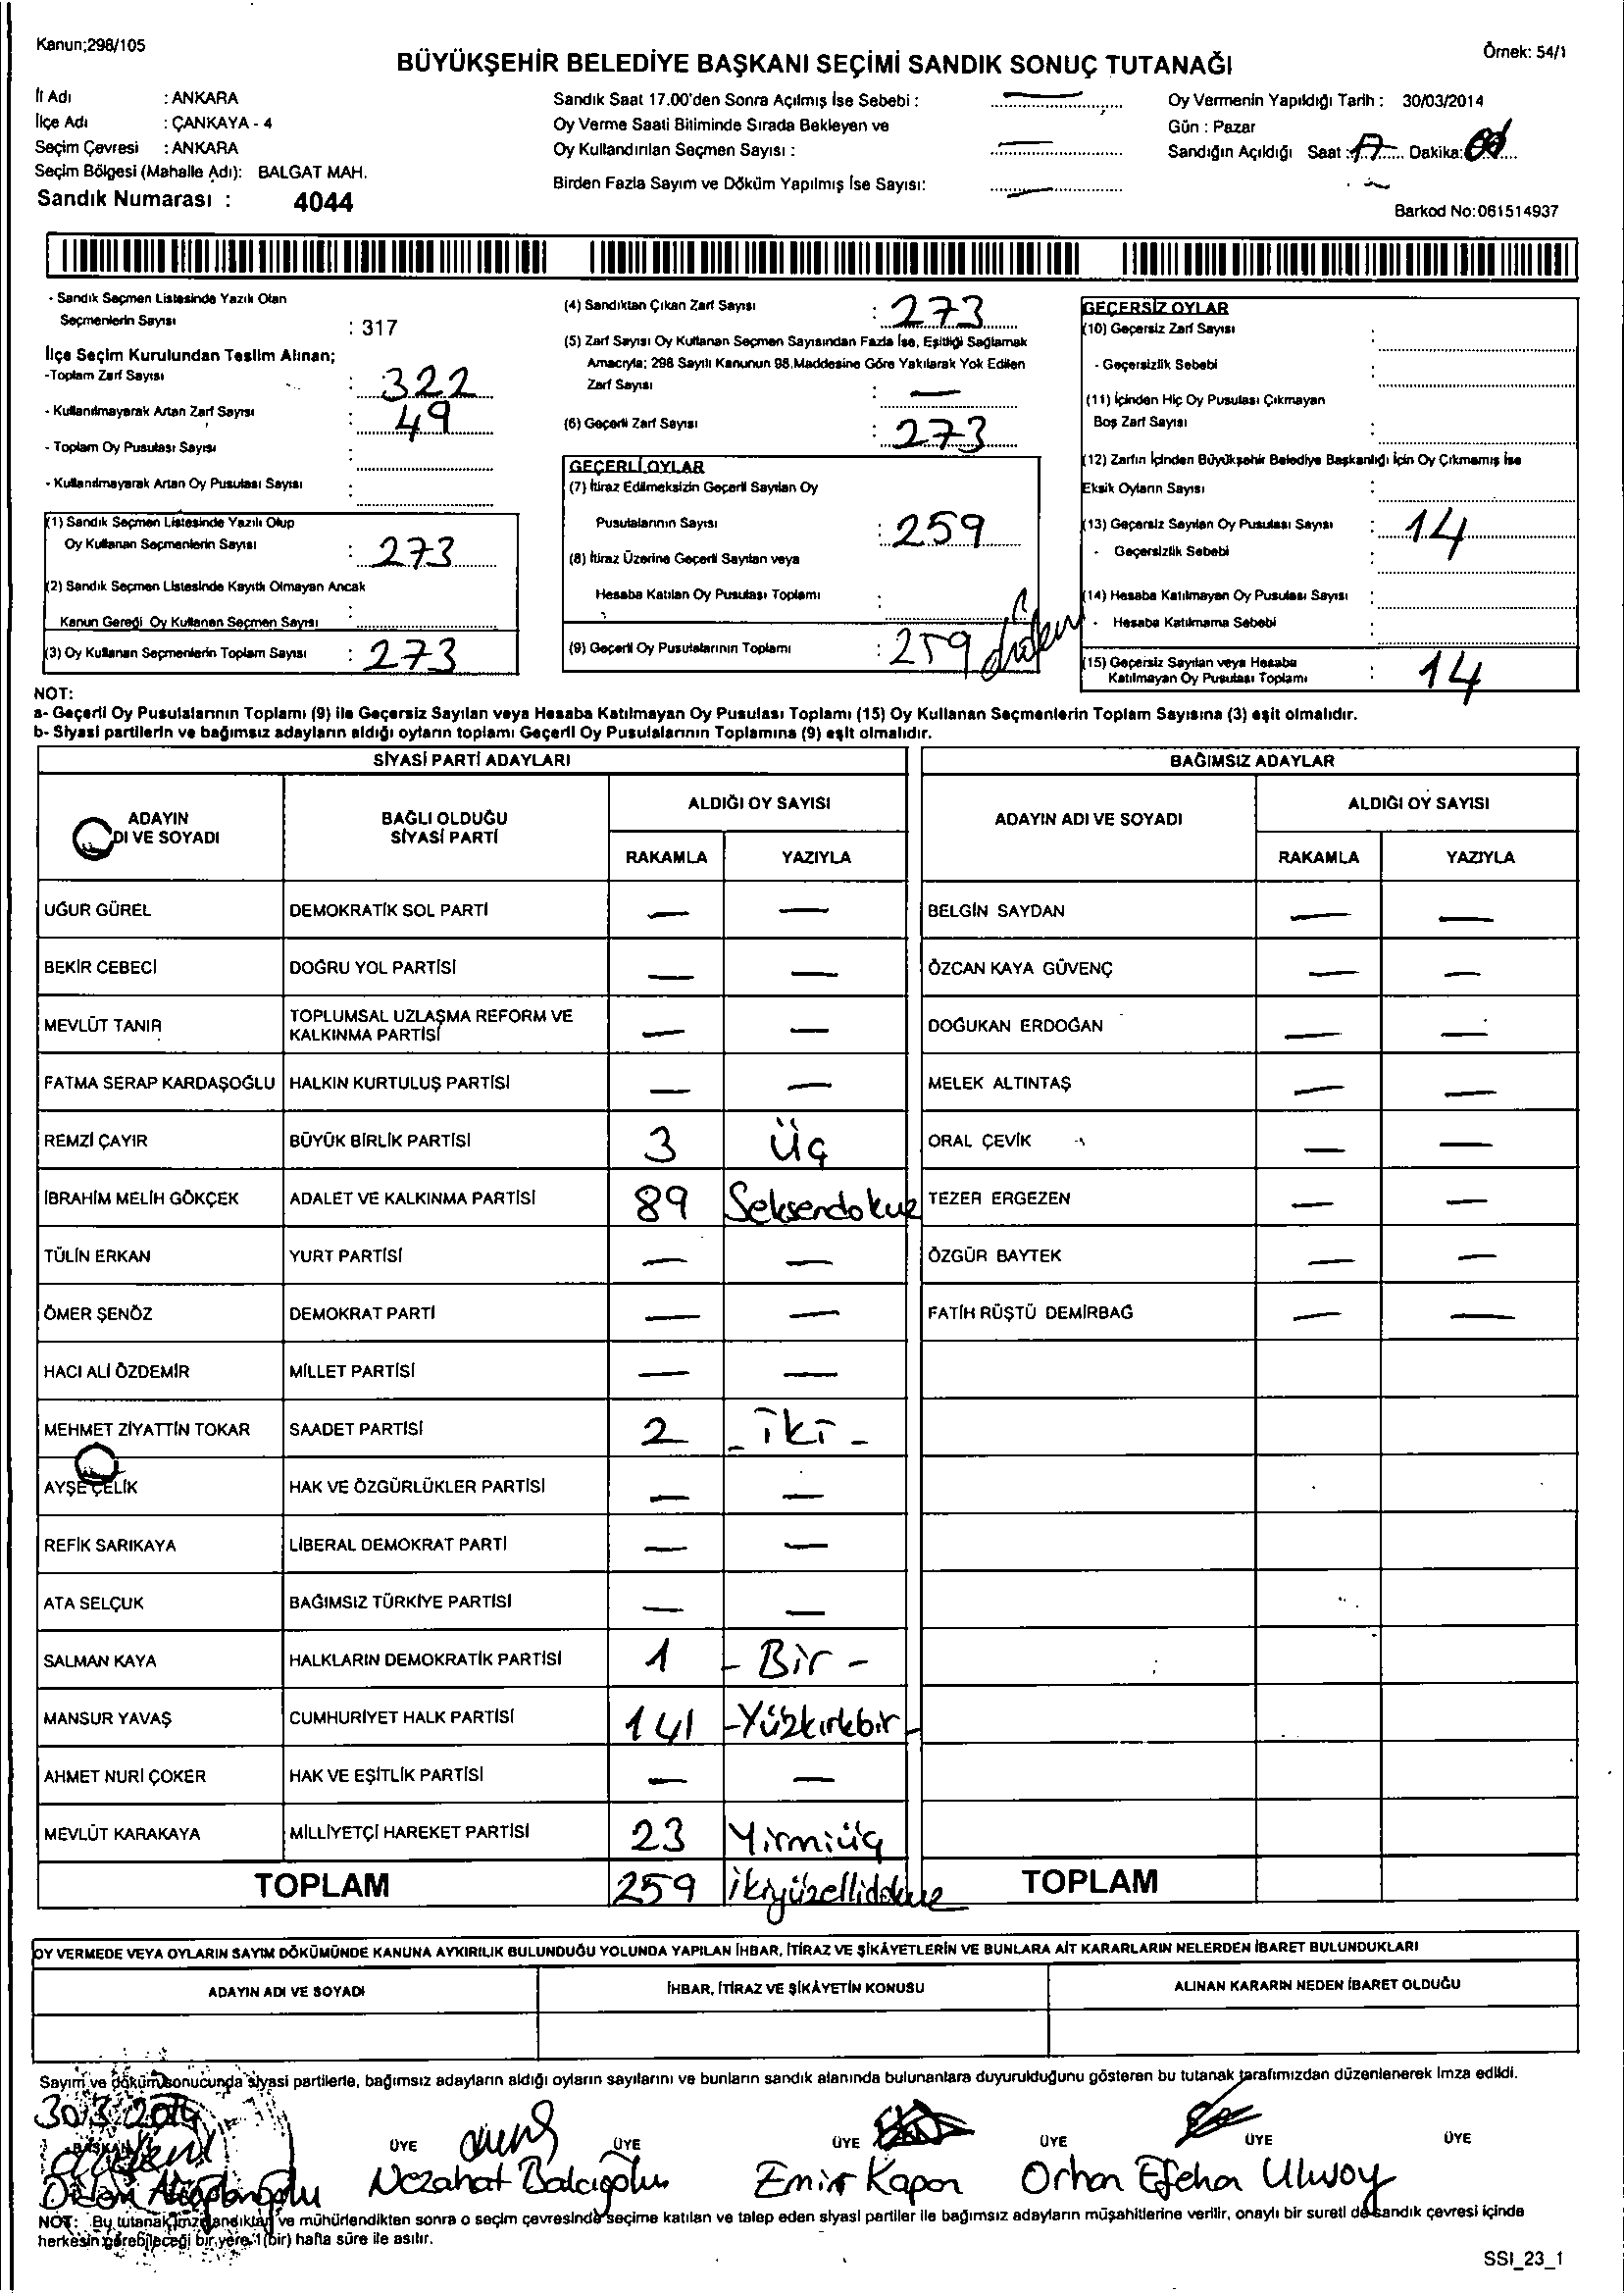 Kanun;298/105
Örnek: 54/1
BÜYÜKŞEHİR BELEDİYE BAŞKANI SEÇİMİ SANDIK SONUÇ TUTANAĞI
İl Adı : ANKARA
İlçe Adı : ÇANKAYA - 4
Seçim Çevresi : ANKARA
Seçim Bölgesi (Mahalle Adı): BALGAT MAH.
Sandık Numarası : 4044
Sandık Saat 17.00'den Sonra Açılmış İse Sebebi : —
Oy Verme Saati Bitiminde Sırada Bekleyen ve
Oy Kullandırılan Seçmen Sayısı : —
Birden Fazla Sayım ve Döküm Yapılmış İse Sayısı: —
Oy Vermenin Yapıldığı Tarih : 30/03/2014
Gün : Pazar
Sandığın Açıldığı Saat : 17 Dakika:
Barkod No:061514937
- Sandık Seçmen Listesinde Yazılı Olan
Seçmenlerin Sayısı : 317
İlçe Seçim Kurulundan Teslim Alınan;
-Toplam Zarf Sayısı : 322
- Kullanılmayarak Artan Zarf Sayısı : 49
- Toplam Oy Pusulası Sayısı :
- Kullanılmayarak Artan Oy Pusulası Sayısı :
(1) Sandık Seçmen Listesinde Yazılı Olup
Oy Kullanan Seçmenlerin Sayısı : 273
(2) Sandık Seçmen Listesinde Kayıtlı Olmayan Ancak
Kanun Gereği Oy Kullanan Seçmen Sayısı :
(3) Oy Kullanan Seçmenlerin Toplam Sayısı : 273
(4) Sandıktan Çıkan Zarf Sayısı : 273
(5) Zarf Sayısı Oy Kullanan Seçmen Sayısından Fazla İse, Eşitliği Sağlamak
Amacıyla; 298 Sayılı Kanunun 98.Maddesine Göre Yakılarak Yok Edilen
Zarf Sayısı : —
(6) Geçerli Zarf Sayısı : 273
GEÇERLİ OYLAR
(7) İtiraz Edilmeksizin Geçerli Sayılan Oy
Pusulalarının Sayısı : 259
(8) İtiraz Üzerine Geçerli Sayılan veya
Hesaba Katılan Oy Pusulası Toplamı :
(9) Geçerli Oy Pusulalarının Toplamı : 259
GEÇERSİZ OYLAR
(10) Geçersiz Zarf Sayısı :
- Geçersizlik Sebebi :
(11) İçinden Hiç Oy Pusulası Çıkmayan
Boş Zarf Sayısı :
(12) Zarfın İçinden Büyükşehir Belediye Başkanlığı İçin Oy Çıkmamış İse
Eksik Oyların Sayısı :
(13) Geçersiz Sayılan Oy Pusulası Sayısı : 14
- Geçersizlik Sebebi :
(14) Hesaba Katılmayan Oy Pusulası Sayısı :
- Hesaba Katılmama Sebebi :
(15) Geçersiz Sayılan veya Hesaba
Katılmayan Oy Pusulası Toplamı : 14
NOT:
a- Geçerli Oy Pusulalarının Toplamı (9) ile Geçersiz Sayılan veya Hesaba Katılmayan Oy Pusulası Toplamı (15) Oy Kullanan Seçmenlerin Toplam Sayısına (3) eşit olmalıdır.
b- Siyasi partilerin ve bağımsız adayların aldığı oyların toplamı Geçerli Oy Pusulalarının Toplamına (9) eşit olmalıdır.
SİYASİ PARTİ ADAYLARI BAĞIMSIZ ADAYLAR
ADAYIN
DI VE SOYADI
BAĞLI OLDUĞU
SİYASİ PARTİ
ALDIĞI OY SAYISI
RAKAMLA YAZIYLA
ADAYIN ADI VE SOYADI
ALDIĞI OY SAYISI
RAKAMLA YAZIYLA
UĞUR GÜREL DEMOKRATİK SOL PARTİ — — BELGİN SAYDAN — —
BEKİR CEBECİ DOĞRU YOL PARTİSİ — — ÖZCAN KAYA GÜVENÇ — —
MEVLÜT TANIR TOPLUMSAL UZLAŞMA REFORM VE
KALKINMA PARTİSİ — — DOĞUKAN ERDOĞAN — —
FATMA SERAP KARDAŞOĞLU HALKIN KURTULUŞ PARTİSİ — — MELEK ALTINTAŞ — —
REMZİ ÇAYIR BÜYÜK BİRLİK PARTİSİ 3 üç ORAL ÇEVİK — —
İBRAHİM MELİH GÖKÇEK ADALET VE KALKINMA PARTİSİ 89 Seksendokuz TEZER ERGEZEN — —
TÜLİN ERKAN YURT PARTİSİ — — ÖZGÜR BAYTEK — —
ÖMER ŞENÖZ DEMOKRAT PARTİ — — FATİH RÜŞTÜ DEMİRBAĞ — —
HACI ALİ ÖZDEMİR MİLLET PARTİSİ — —
MEHMET ZİYATTİN TOKAR SAADET PARTİSİ 2 - iki -
AYŞE ÇELİK HAK VE ÖZGÜRLÜKLER PARTİSİ — —
REFİK SARIKAYA LİBERAL DEMOKRAT PARTİ — —
ATA SELÇUK BAĞIMSIZ TÜRKİYE PARTİSİ — —
SALMAN KAYA HALKLARIN DEMOKRATİK PARTİSİ 1 - Bir -
MANSUR YAVAŞ CUMHURİYET HALK PARTİSİ 141 -Yüzkırkbir-
AHMET NURİ ÇOKER HAK VE EŞİTLİK PARTİSİ — —
MEVLÜT KARAKAYA MİLLİYETÇİ HAREKET PARTİSİ 23 Yirmiüç
TOPLAM 259 ikiyüzellidokuz TOPLAM
OY VERMEDE VEYA OYLARIN SAYIM DÖKÜMÜNDE KANUNA AYKIRILIK BULUNDUĞU YOLUNDA YAPILAN İHBAR, İTİRAZ VE ŞİKÂYETLERİN VE BUNLARA AİT KARARLARIN NELERDEN İBARET BULUNDUKLARI
ADAYIN ADI VE SOYADI İHBAR, İTİRAZ VE ŞİKÂYETİN KONUSU ALINAN KARARIN NEDEN İBARET OLDUĞU
Sayım ve döküm sonucunda siyasi partilerle, bağımsız adayların aldığı oyların sayılarını ve bunların sandık alanında bulunanlara duyurulduğunu gösteren bu tutanak tarafımızdan düzenlenerek imza edildi.
30.3.2014
BAŞKAN ÜYE ÜYE ÜYE ÜYE ÜYE ÜYE
Nezahat Balcıoğlu Emir Kapan Orhan Efehan Ulusoy
NOT: Bu tutanak imzalandıktan ve mühürlendikten sonra o seçim çevresinde seçime katılan ve talep eden siyasi partiler ile bağımsız adayların müşahitlerine verilir, onaylı bir sureti de sandık çevresi içinde
herkesin görebileceği bir yere 1 (bir) hafta süre ile asılır.
SSI_23_1